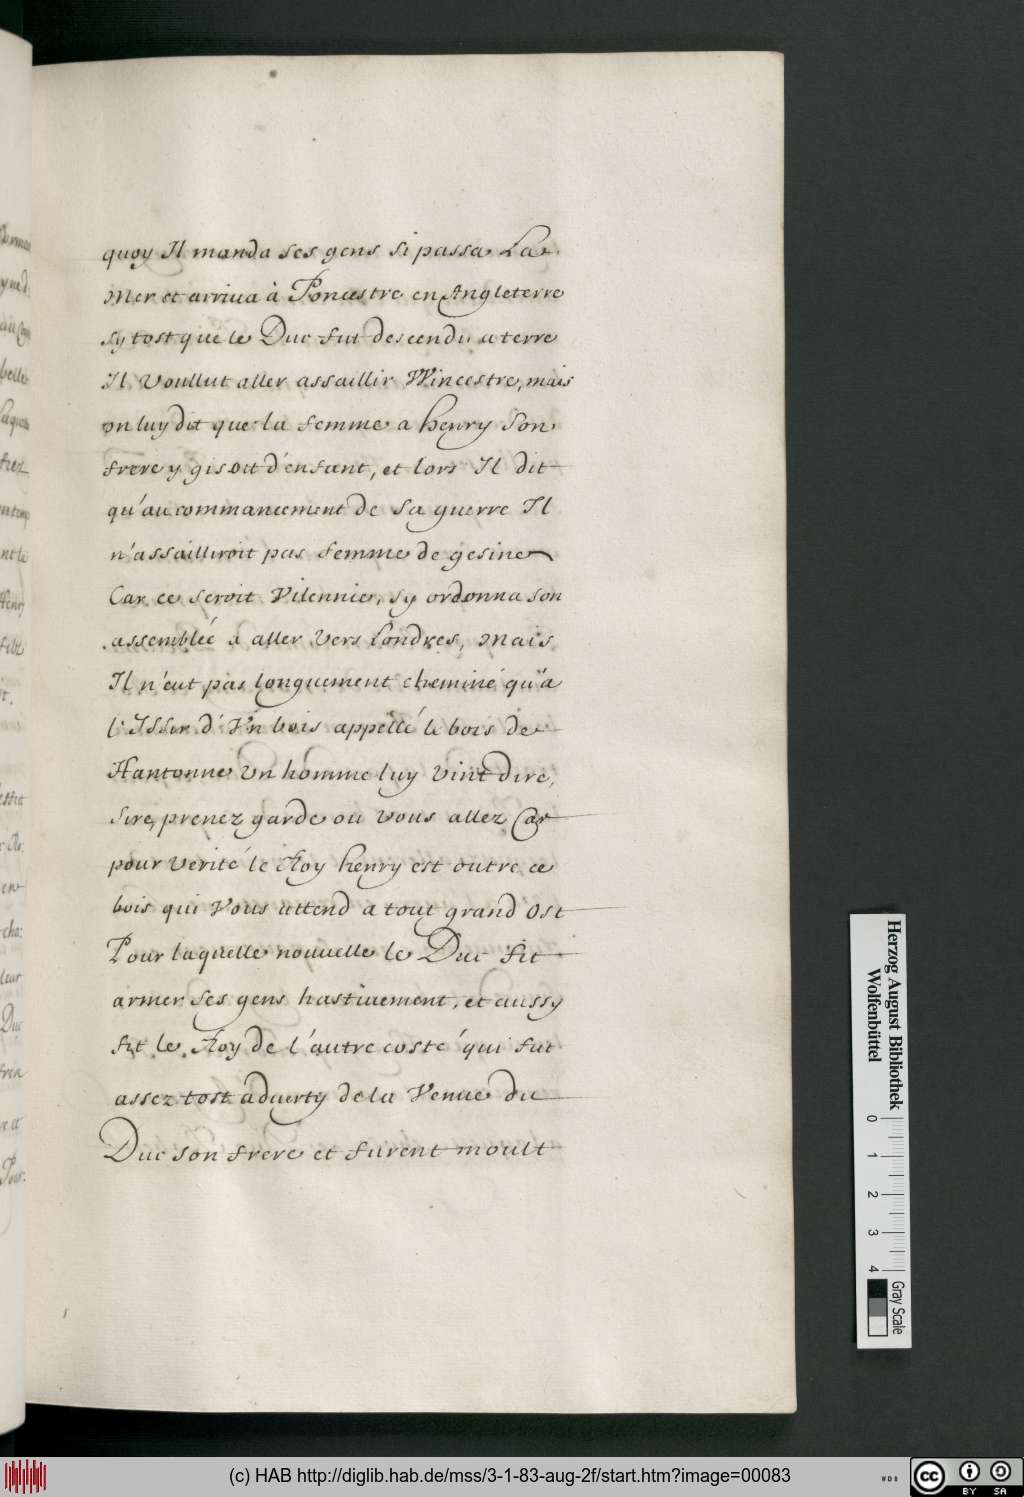 quoy Il manda ses gens si passa La
Mer et arriua à Poncestre en Angleterre
sy tost que le Duc fut descendu a terre
Il Voullut aller assaillir Wincestre, mais
on luy dit que la femme a henry son
frere y gisoit d'enfant, et lors Il dit
qu'au commancement de sa guerre Il
n'assailliroit pas femme de gesine
Car ce seroit Vilennie, sy ordonna son
assembléé a aller Vers Londres, Mais
Il n'eut pas longuement cheminé qu'a
l'Issir d'Vn bois appellé le bois de
Hantonne Vn homme luy Vint dire,
Sire, prenez garde ou Vous allez Car
pour Verité le Roy henry est outre ce
bois qui Vous attend a tout grand Ost
Pour laquelle nouuelle le Duc fit
armer ses gens hastiuement, et aussy
fit le Roy de l'autre costé qui fut
assez tost aduerty de la Venue du
Duc son frere et furent moult
Herzog August Bibliothek
Wolfenbüttel
0 1 2 3 4
Gray Scale
(c) HAB http://diglib.hab.de/mss/3-1-83-aug-2f/start.htm?image=00083
WDB
cc BY SA